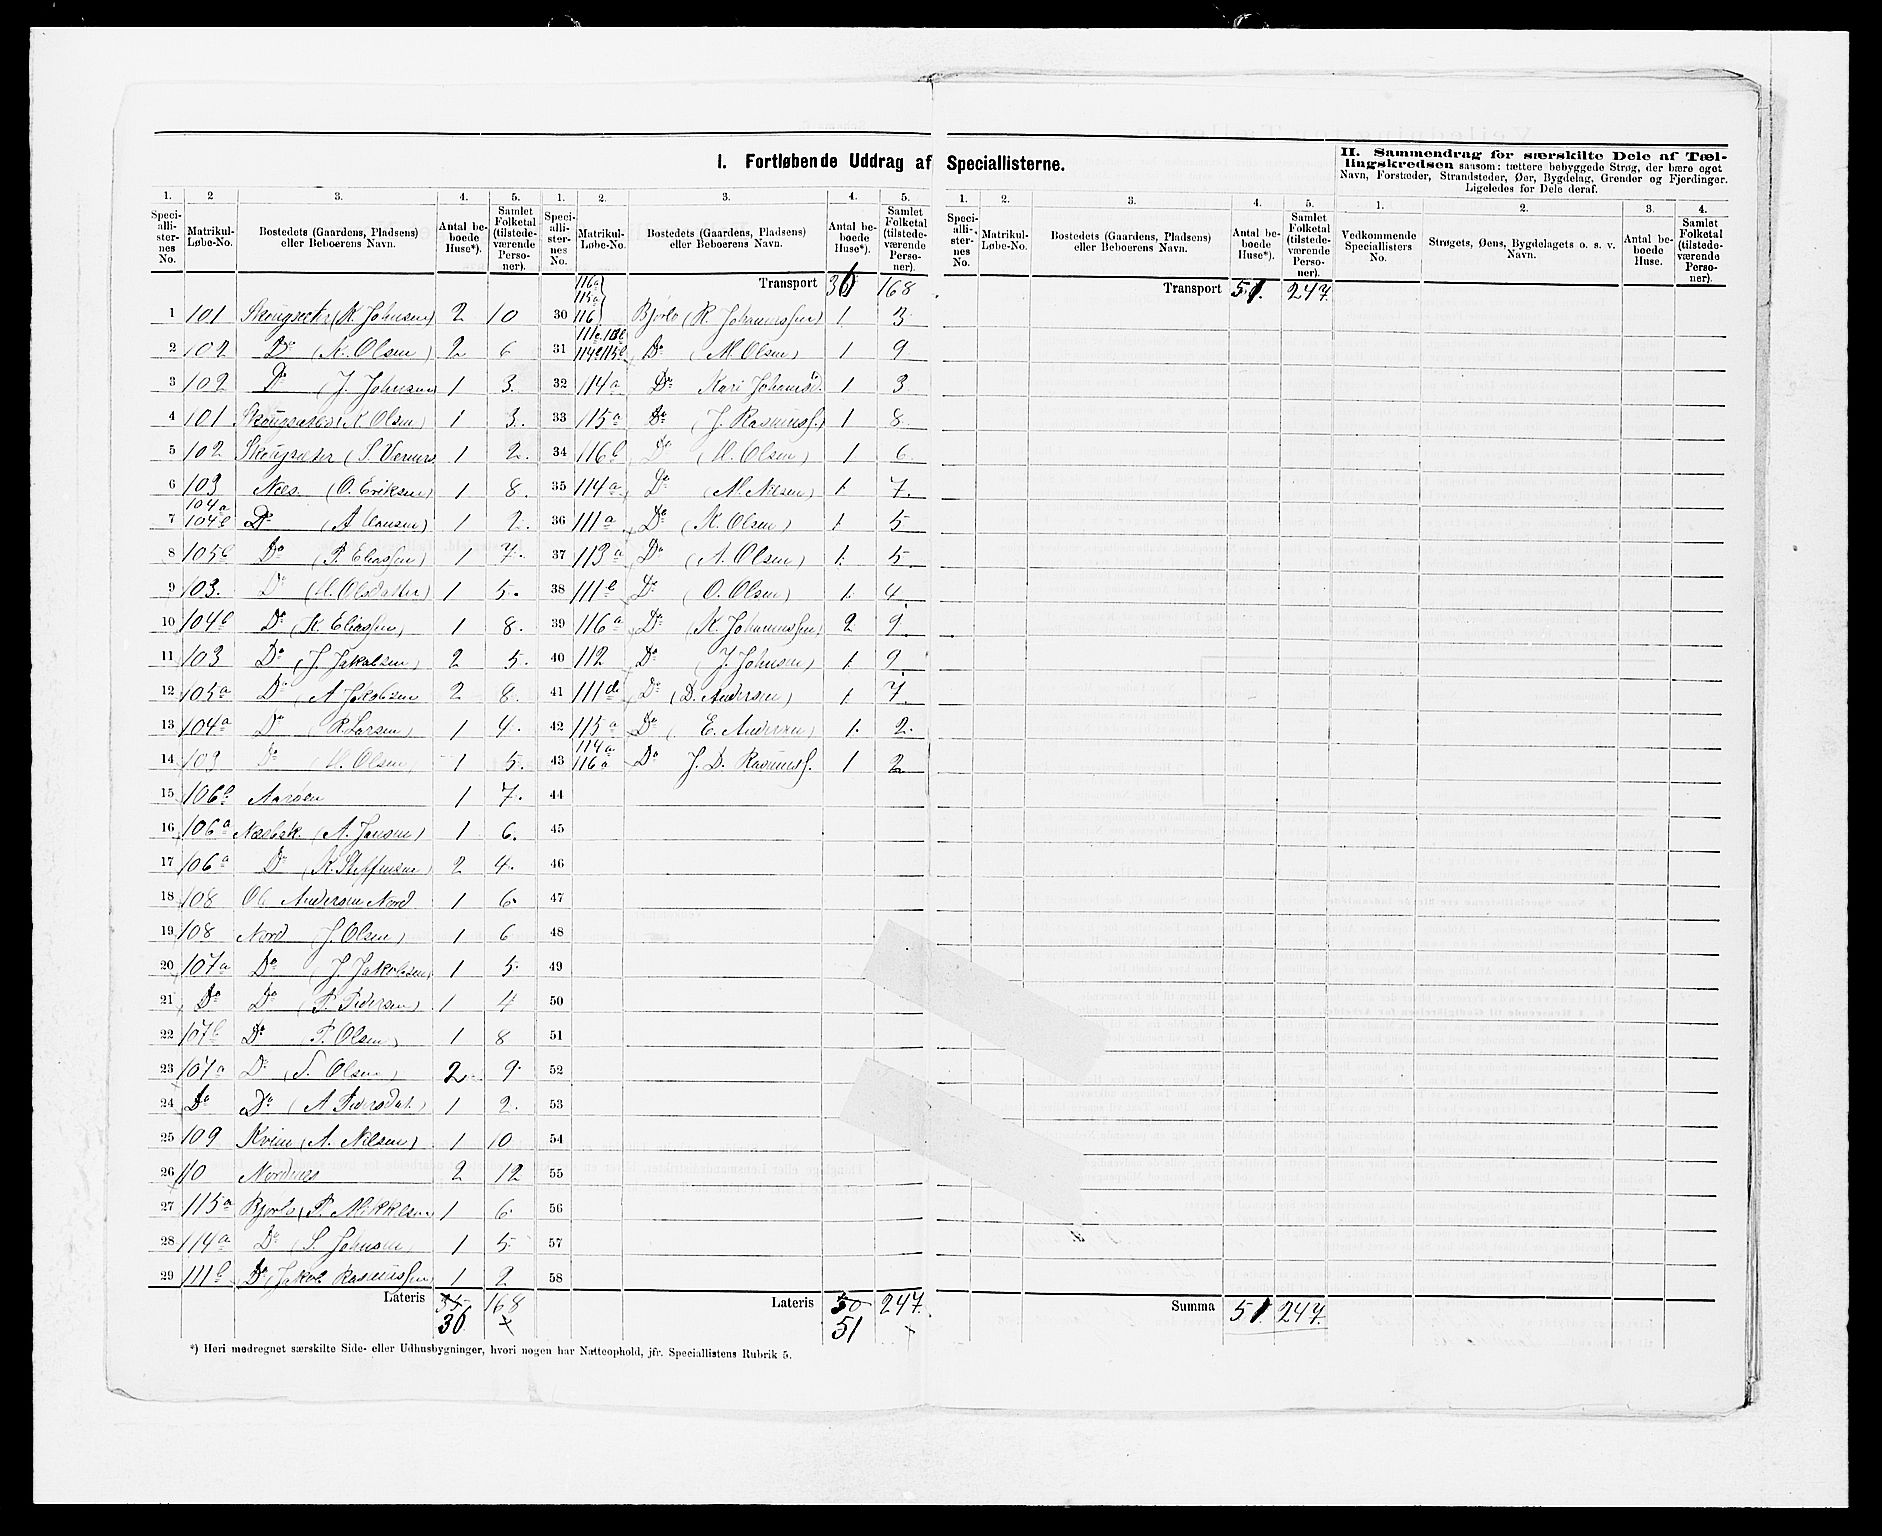 I. Fortløbende Uddrag af Speciallisterne.
II. Sammendrag for særskilte Dele af Tællingskredsen saasom: tættere bebyggede Strøg, der bære eget
Navn, Forstæder, Strandsteder, Øer, Bygdelag, Grender og Fjerdinger.
Ligeledes for Dele deraf.
1. 2 3. 4. 5. 1. 2. 3. 4. 5. 1. 2. 3. 4. 5. 1. 2. 3. 4.
Speciallisternes No. Matrikul-Løbe-No. Bostedets (Gaardens, Pladsens) eller Beboerens Navn. Antal beboede Huse*). Samlet Folketal (tilstedeværende Personer).
Speciallisternes No. Matrikul-Løbe-No. Bostedets (Gaardens, Pladsens) eller Beboerens Navn. Antal beboede Huse*). Samlet Folketal (tilstedeværende Personer).
Speciallisternes No. Matrikul-Løbe-No. Bostedets (Gaardens, Pladsens) eller Beboerens Navn. Antal beboede Huse*). Samlet Folketal (tilstedeværende Personer).
Vedkommende Speciallisters No. Strøgets, Øens, Bygdelagets o. s. v. Navn. Antal beboede Huse. Samlet Folketal (tilstedeværende Personer).
1 101 (K. Johnsen) 2 10
2 102 Do (K. Olsen) 2 6
3 102 Do (J. Johnsen 1 3.
4 101 (K. Olsen) 1 3.
5 102 1 2.
6 103 Næs. (O. Eriksen) 1 8.
7 104a 104b Do (A. Hansen) 1 2.
8 105b Do (P. Eliassen) 1 7.
9 103. Do (M. Olsdatter) 1 5.
10 104b Do (K. Eliassen) 1 8.
11 103 Do (J. Jakobsen) 2 5.
12 105a Do (A. Jakobsen 2 8.
13 104a Do (R. Larsen) 1 4.
14 103 Do Olsen) 1 5.
15 106b Aarøen 1 7.
16 106a Næsbak. (A. Jansen) 1 6.
17 106a Do (K. Steffensen) 2 4.
18 108 Ol. Andersen Nord 1 6.
19 108 Nord (J. Olsen) 1 6
20 107a Do (J. Jakobsen) 1 5.
21 Do Do (P. Pedersen) 1 4
22 107b Do P. Olsen) 1 8
23 107a Do (S. Olsen) 2 9.
24 Do Do (A. Pedersdat.) 1 2.
25 109 Kvien (A. Nilsen) 1 10
26 110 Nordnes 2 12
27 115a Bjørlo (P. Mikkelsen 1 6.
28 114a Do (S. Johnsen) 1 5.
29 111b Do (Jakob Rasmussen) 1 2
Lateris 35 168
36
Transport 36 168
30 116a 115a 116 Bjørlo (R. Johannessen) 1. 3
31 Do (M. Olsen) 1 9
32 114a Do Kari Johansd. 1 3
33 115a Do (J. Rasmuss.) 1 8
34 116b Do (M. Olsen) 1 6
35 114a Do (M. Nilsen) 1. 7.
36 111a Do (K. Olsen) 1. 5
37 113a Do (A. Olsen) 1. 5.
38 111b Do (O. Olsen) 1. 4
39 116a Do (K. Johannessen) 2 9
40 112 Do (J. Johnsen) 1. 9
41 Do (D. Andersen) 1. 7.
42 115a Do (E. Andersen) 1. 2.
43 114a 116a Do J. D. Rasmuss. 1 2
44
45
46
47
48
49
50
51
52
53
54
55
56
57
58
Lateris 50 247.
51
Transport 51. 247.
Summa 51 247.
*) Heri medregnet særskilte Side- eller Udhusbygninger, hvori nogen har Natteophold, jfr. Speciallistens Rubrik 5.